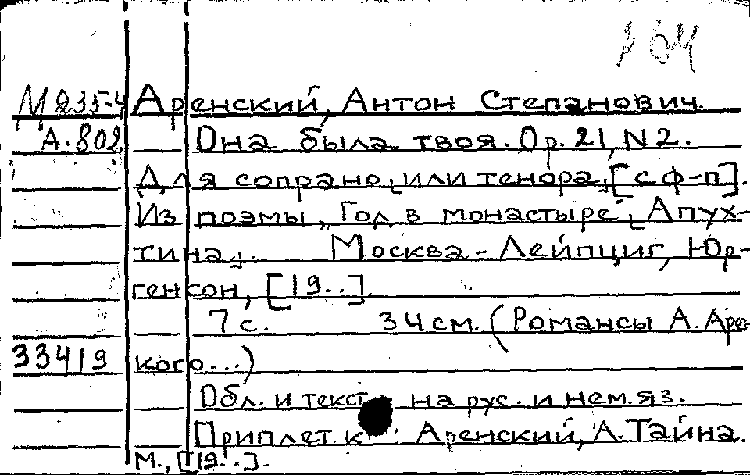 М 235-4 Аренский, Антон Степанович.
А.802 Она была твоя. Ор. 21, N2.
Для сопрано или тенора, [с ф-п].
Из поэмы „Год в монастыре" Апух-
тина. Москва - Лейпциг, Юр-
генсон, [19..].
7 с. 34 см. (Романсы А. Арен-
33419 кого...)
Обл. и текст на рус. и нем. яз.
Приплет к Аренский, А. Тайна.
М., [19..].